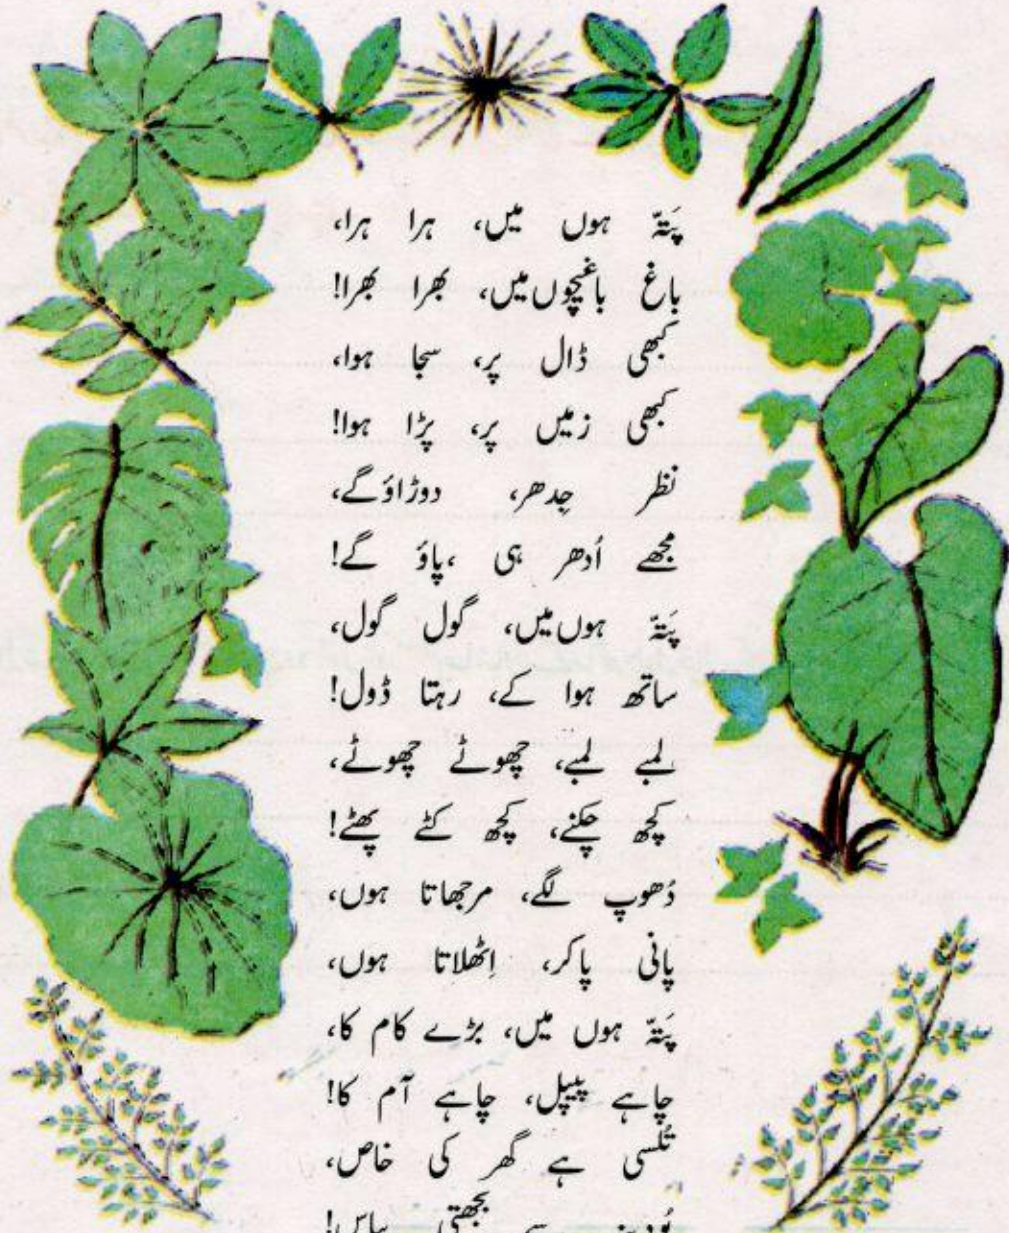 پَتّہ ہوں میں، ہرا ہرا،
باغ باغچوں میں، بھرا بھرا!
کبھی ڈال پر، سجا ہوا،
کبھی زمیں پر، پڑا ہوا!
نظر جِدھر، دوڑاؤگے،
مجھے اُدھر ہی ،پاؤ گے!
پَتّہ ہوں میں، گول گول،
ساتھ ہوا کے، رہتا ڈول!
لمبے لمبے، چھوٹے چھوٹے،
کچھ چکنے، کچھ کٹے پھٹے!
دُھوپ لگے، مرجھاتا ہوں،
پانی پاکر، اِٹھلاتا ہوں،
پَتّہ ہوں میں، بڑے کام کا،
چاہے پیپل، چاہے آم کا!
تُلسی ہے گھر کی خاص،
سے بجھتی پیاس!